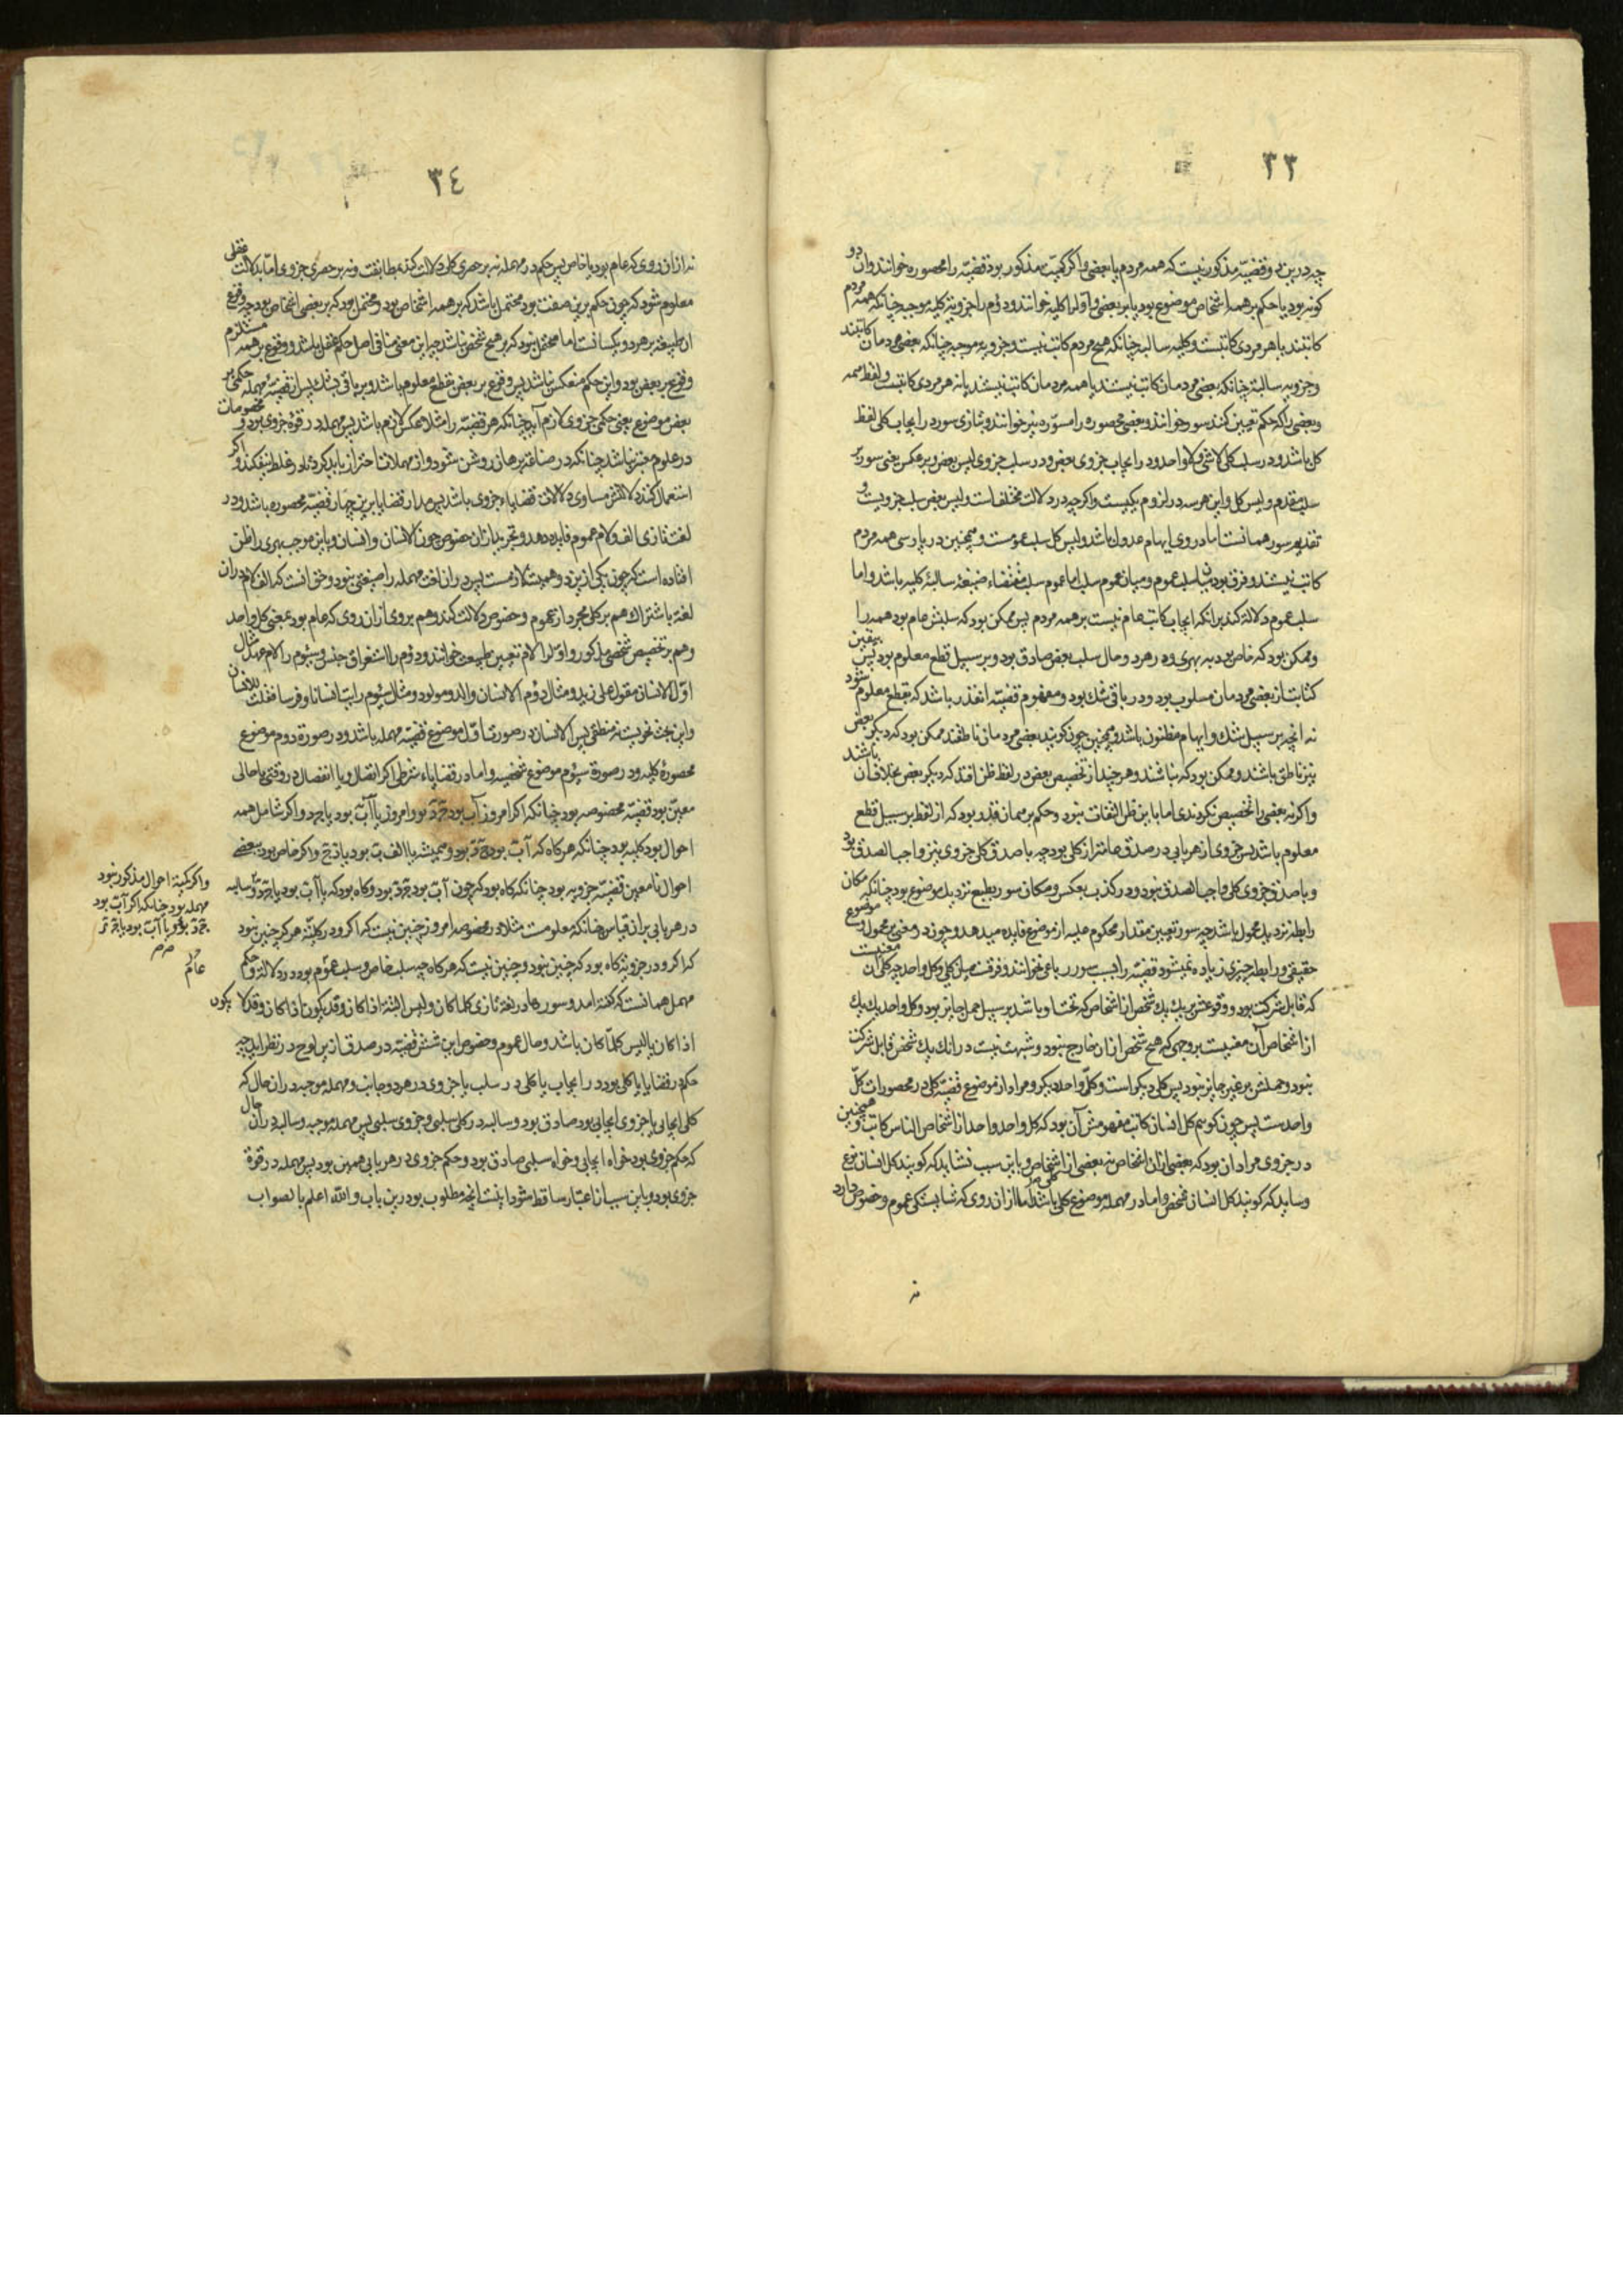 ٣٣
چه درین دو قضیّه مذکور نیست که همه مردم یا بعضی و اگر کمیّت مذکور بود قضیّه را محصوره خوانند و ان دو
کونه بود یا حکم بر همه اشخاص موضوع بود یا بر بعضی و اوّل را کلیه خوانند و دوّم را جزویّه کلیه موجبه چنانکه همه مردم
کاتبند یا هر مردی کاتبست و کلیه سالبه چنانکه هیچ مردم کاتب نیست و جزویه موجبه چنانکه بعضی مردمان کاتبند
و جزویه سالبه چنانکه بعضی مردمان کاتب نیستند یا همه مردمان کاتب نیستند یا نه هر مردی کاتبست و لفظ همه
و بعضی را که حکم تعیین کند سور خوانند و بعضی محصوره را مسوّره نیز خوانند و بتازی سور در ایجاب کلی لفظ
کل باشد و در سلب کلی لا شی و لا واحد و در ایجاب جزوی بعض و در سلب جزوی لیس بعض و بر عکس یعنی سور بر
سلب مقدم و لیس کل و این هر سه در لزوم یکیست و اگر چه در دلالت مختلف است و لیس بعض سلب جزویست و
تقدیم سور همانست اما در وی ایهام عدول باشد و لیس کل سلب عمومست و همچنین در پارسی همه مردم
کاتب نیستند و فرق بود میان سلب عموم و میان عموم سلب اما عموم سلب مقتضاء صیغهٔ سالبهٔ کلیه باشد و اما
سلب عموم دلالت کند بر انکه ایجاب کاتب عام نیست بر همه مردم پس ممکن بود که سلبش عام بود همه را
و ممکن بود که خاص بود به بهری و در هر دو حال سلب بعض صادق بود و بر سبیل قطع معلوم بود پس بیقین
کتابت از بعضی مردمان مسلوب بود و در باقی شک بود و مفهوم قضیّه انقدر باشد که بقطع معلوم شود
نه انچه بر سبیل شک و ایهام مظنون باشد و همچنین چون کویند بعضی مردمان ناطقند ممکن بود که دیکر بعض
نیز ناطق باشند و ممکن بود که نباشند و هر چند از تخصیص بعض در لفظ ظن افتد که دیکر بعض بخلاف آن باشند
و اکر نه بعضی را تخصیص نکردندی اما باین ظن التفات نبود و حکم بر همان قدر بود که از لفظ بر سبیل قطع
معلوم باشد پس جزوی از هر بابی در صدق عامتر از کلی بود چه با صدق کلی جزوی نیز واجب الصدق بود
و با صدق جزوی کلی واجب الصدق نبود و در کذب بعکس و مکان سور بطبع نزدیک موضوع بود چنانکه مکان
رابطه نزدیک محمول باشد چه سور تعیین مقدار محکوم علیه از موضوع فایده میدهد و چون در معنی بر محمول و موضوع
حقیقی و رابطه چیزی زیاده نمیشود قضیّه را بسبب سور رباعی نخوانند و فرقست میان کلی و کل واحد چه کلی آن معنیست
که قابل شرکت بود و وقوعش بر یک یک شخص از اشخاص که تحت او باشد بر سبیل حمل جایز بود و کل واحد یک یک
از اشخاص آن معنیست بر وجهی که هیچ شخص از ان خارج نبود و شبهت نیست در انک یک شخص قابل شرکت
نبود و حملش بر غیر جایز نبود پس کلی دیکر است و کلّ واحد دیکر و مراد از موضوع قضیّه کل در محصورات کلّ
واحدست پس چون کوییم کل انسان کاتب مفهومش آن بود که کل واحد واحد از اشخاص الناس کاتب و همچنین
در جزوی مراد ان بود که بعضی از ان اشخاص نه بعضی از اشخاص و باین سبب نشاید که کویند کل انسان نوع
و شاید که کویند کل انسان شخص و اما در مهمله موضوع کلی باشد اما از ان روی که شایستکی عموم و خصوص دارد
نه
٣٤
نه از ان روی که عام بود یا خاص پس حکم در مهمله نه بر حصری کلی دلالت کند بمطابقت و نه بر حصری جزوی اما بدلالت عقلی
معلوم شود که چون حکم برین صفت بود محتمل باشد که بر همه اشخاص بود و محتمل بود که بر بعضی اشخاص بود چه وقوع
ان طبیعت بر هر دو یکسانست اما محتمل نبود که بر هیچ شخص نباشد چه این معنی منافی اصل حکم عقل باشد و وقوع بر همه مستلزم
وقوع بر بعض بود و این حکم منعکس نباشد پس وقوع بر بعض بقطع معلوم باشد و بر باقی بشک پس از قضیّهٔ مهمله حکمی بر
بعض موضوع یعنی حکمی جزوی لازم آید چنانکه هر قضیّه را مثلا عکس لازم باشد پس مهمله در قوهٔ جزوی بود و مخصوصات
در علوم معتبر نباشد چنانکه در صناعة برهان روشن شود و از مهملات احتراز باید کرد تا در غلط نیفکند و اکر
استعمال کنند دلالتش مساوی دلالات قضایاء جزوی باشد پس مدار قضایا برین چهار قضیّه محصوره باشد و در
لغت تازی الف و لام عموم فایده دهد و تجرید از ان خصوص چون الانسان و انسان و باین موجب بهری را ظن
افتاده است که چون یکی ازین دو همیشه لازمست پس در ان لغت مهمله را صیغتی نبود و حق انست که الف لام در ان
لغة باشتراک هم بر کلی مجرد از عموم و خصوص دلالت کند و هم بر وی از ان روی که عام بود بمعنی کل واحد
و هم بر تخصیص شخصی مذکور و اوّل را لام تعیین طبیعت خوانند و دوّم را استغراق جنس و سیّوم را لام عهد مثال
اوّل الانسان مقول علی زید و مثال دوّم الانسان والد و مولود و مثال سیّوم رایت انسانا و فرسا فقلت للانسان
و این بحث نحویست نه منطقی پس الانسان در صورت اوّل موضوع قضیّه مهمله باشد و در صورة دوم موضوع
محصورهٔ کلیه و در صورة سیّوم موضوع شخصیه و اما در قضایاء شرطی اکر اتصال و یا انفصال در وقتی یا حالی
معیّن بود قضیّه مخصوصه بود چنانکه اکر امروز آب بود ج د بود و امروز یا آب بود یا ج د و اکر شامل همه
احوال بود کلیه بود چنانکه هر کاه که آب بود ج د بود و همیشه یا الف ب بود یا د ج و اکر خاص بود ببعضی
احوال نامعین قضیّه جزویه بود چنانکه کاه بود که چون آب بود ج د بود و کاه بود که یا آب بود یا ج د و سالبه
در هر بابی بر ان قیاس چنانکه معلومست مثلا در مخصوصه امروز چنین نیست که اکر و در کلیّه هرکز چنین نبود
که اکر و در جزویّه کاه بود که چنین نبود و چنین نیست که هر کاه چه سلب خاص و سلب عموم بود در دلالت و حکم
مهمل همانست که کفته امد و سورها در لغة تازی کلما کان و لیس البتة اذا کان و قد یکون اذا کان و قد لا یکون
اذا کان یا لیس کلّما کان باشد و حال عموم و خصوص این شش قضیّه در صدق ازین لوح در نظر اید چه
حکم در قضایا یا کلی بود در ایجاب یا کلی در سلب یا جزوی در هر دو جانب و مهمله موجبه در ان حال که
کلی ایجابی یا جزوی ایجابی بود صادق بود و سالبه در کلی سلبی و جزوی سلبی پس مهمله موجبه و سالبه در ان حال
که حکم جزوی بود خواه ایجابی و خواه سلبی صادق بود و حکم جزوی در هر بابی همین بود پس مهمله در قوة
جزوی بود و باین سبب از اعتبار ساقط شود اینست انچه مطلوب بود درین باب و الله اعلم بالصواب
و اکر کمیّة احوال مذکور نبود
مهمله بود چنانکه اکر آب بود
ج د بود و یا آب بود یا ج د